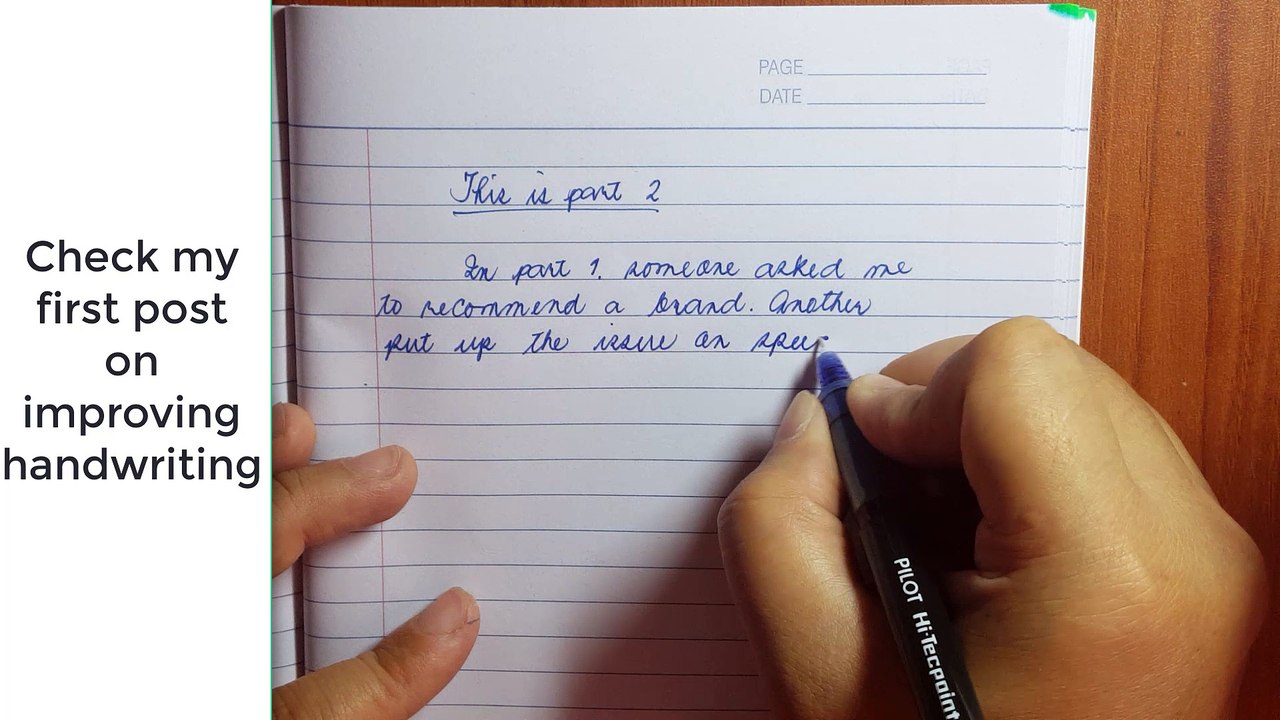 Check my
first post
on
improving
handwriting
PAGE
DATE
This is part 2
In part 1, someone asked me
to recommend a brand. Another
put up the issue on
PILOT Hi-Tecpoint